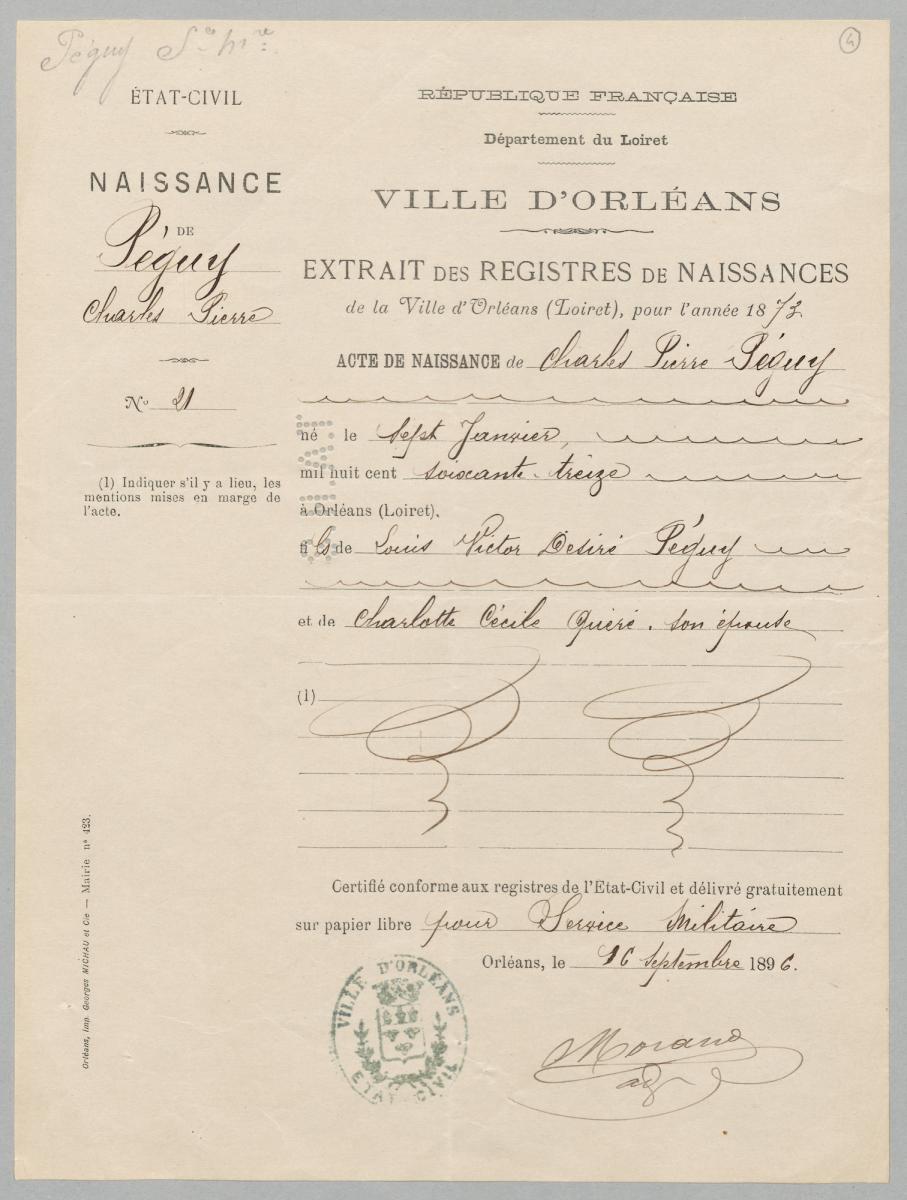 Péguy
4
ÉTAT-CIVIL
NAISSANCE
DE
Péguy
Charles Pierre
No 21
(1) Indiquer s'il y a lieu, les
mentions mises en marge de
l'acte.
Orléans, Imp. Georges MICHAU et Cie — Mairie nº 423.
RÉPUBLIQUE FRANÇAISE
Département du Loiret
VILLE D'ORLÉANS
EXTRAIT DES REGISTRES DE NAISSANCES
de la Ville d'Orléans (Loiret), pour l'année 1873
ACTE DE NAISSANCE de Charles Pierre Péguy
né le Sept Janvier,
mil huit cent soixante-treize
à Orléans (Loiret),
fils de Louis Victor Désiré Péguy
et de Charlotte Cécile Quéré, son épouse
(1)
Certifié conforme aux registres de l'Etat-Civil et délivré gratuitement
sur papier libre pour Service Militaire
Orléans, le 16 Septembre 1896.
VILLE D'ORLÉANS
ETAT-CIVIL
Morand
adj